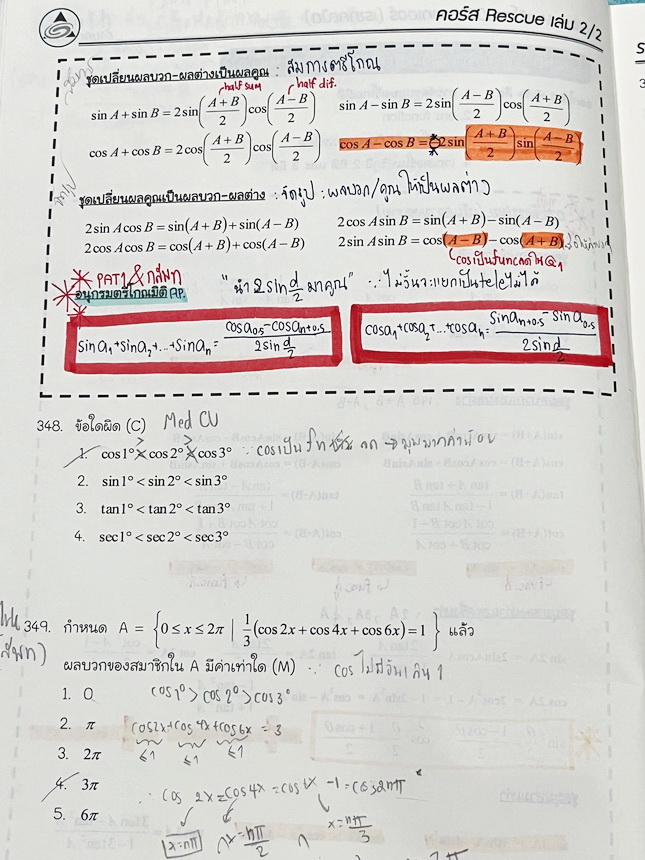 คอร์ส Rescue เล่ม 2/2
ชุดเปลี่ยนผลบวก-ผลต่างเป็นผลคูณ : สมการตรีโกณ
half sum half dif.
sin A + sin B = 2sin((A+B)/2)cos((A−B)/2) sin A − sin B = 2sin((A−B)/2)cos((A+B)/2)
cos A + cos B = 2cos((A+B)/2)cos((A−B)/2) cos A − cos B = −2sin((A+B)/2)sin((A−B)/2)
ชุดเปลี่ยนผลคูณเป็นผลบวก-ผลต่าง : จัดรูป : ผลบวก/คูณ ให้เป็นผลต่าง
2sin A cos B = sin(A+B) + sin(A−B) 2cos A sin B = sin(A+B) − sin(A−B)
2cos A cos B = cos(A+B) + cos(A−B) 2sin A sin B = cos(A−B) − cos(A+B)
cosเป็นฟังก์ชันลดใน Q1
PAT1 & กสพท
อนุกรมตรีโกณมิติ AP. "นำ 2sin d/2 มาคูณ" ∵ ไม่งั้นจะแยกเป็นteleไม่ได้
sin a₁ + sin a₂ + ... + sin aₙ = (cos a₀.₅ − cos aₙ₊₀.₅)/(2sin d/2) cos a₁ + cos a₂ + ... + cos aₙ = (sin aₙ₊₀.₅ − sin a₀.₅)/(2sin d/2)
348. ข้อใดผิด (C) Med CU
> >
1. cos1° < cos2° < cos3° ∵ cosเป็น
2. sin1° < sin2° < sin3°
3. tan1° < tan2° < tan3°
4. sec1° < sec2° < sec3°
349. กำหนด A = {0 ≤ x ≤ 2π | 1/3(cos2x + cos4x + cos6x) = 1} แล้ว
ผลบวกของสมาชิกใน A มีค่าเท่าใด (M) ∵ cos ไม่มีวันเกิน 1
1. 0 cos1° > cos2° > cos3°
2. π cos2x + cos4x + cos6x = 3
3. 2π ≤1 ≤1 ≤1
4. 3π ∴ cos 2x = cos4x = cos6x = 1 = cos2nπ
5. 6π x = nπ x = nπ/2 x = nπ/3